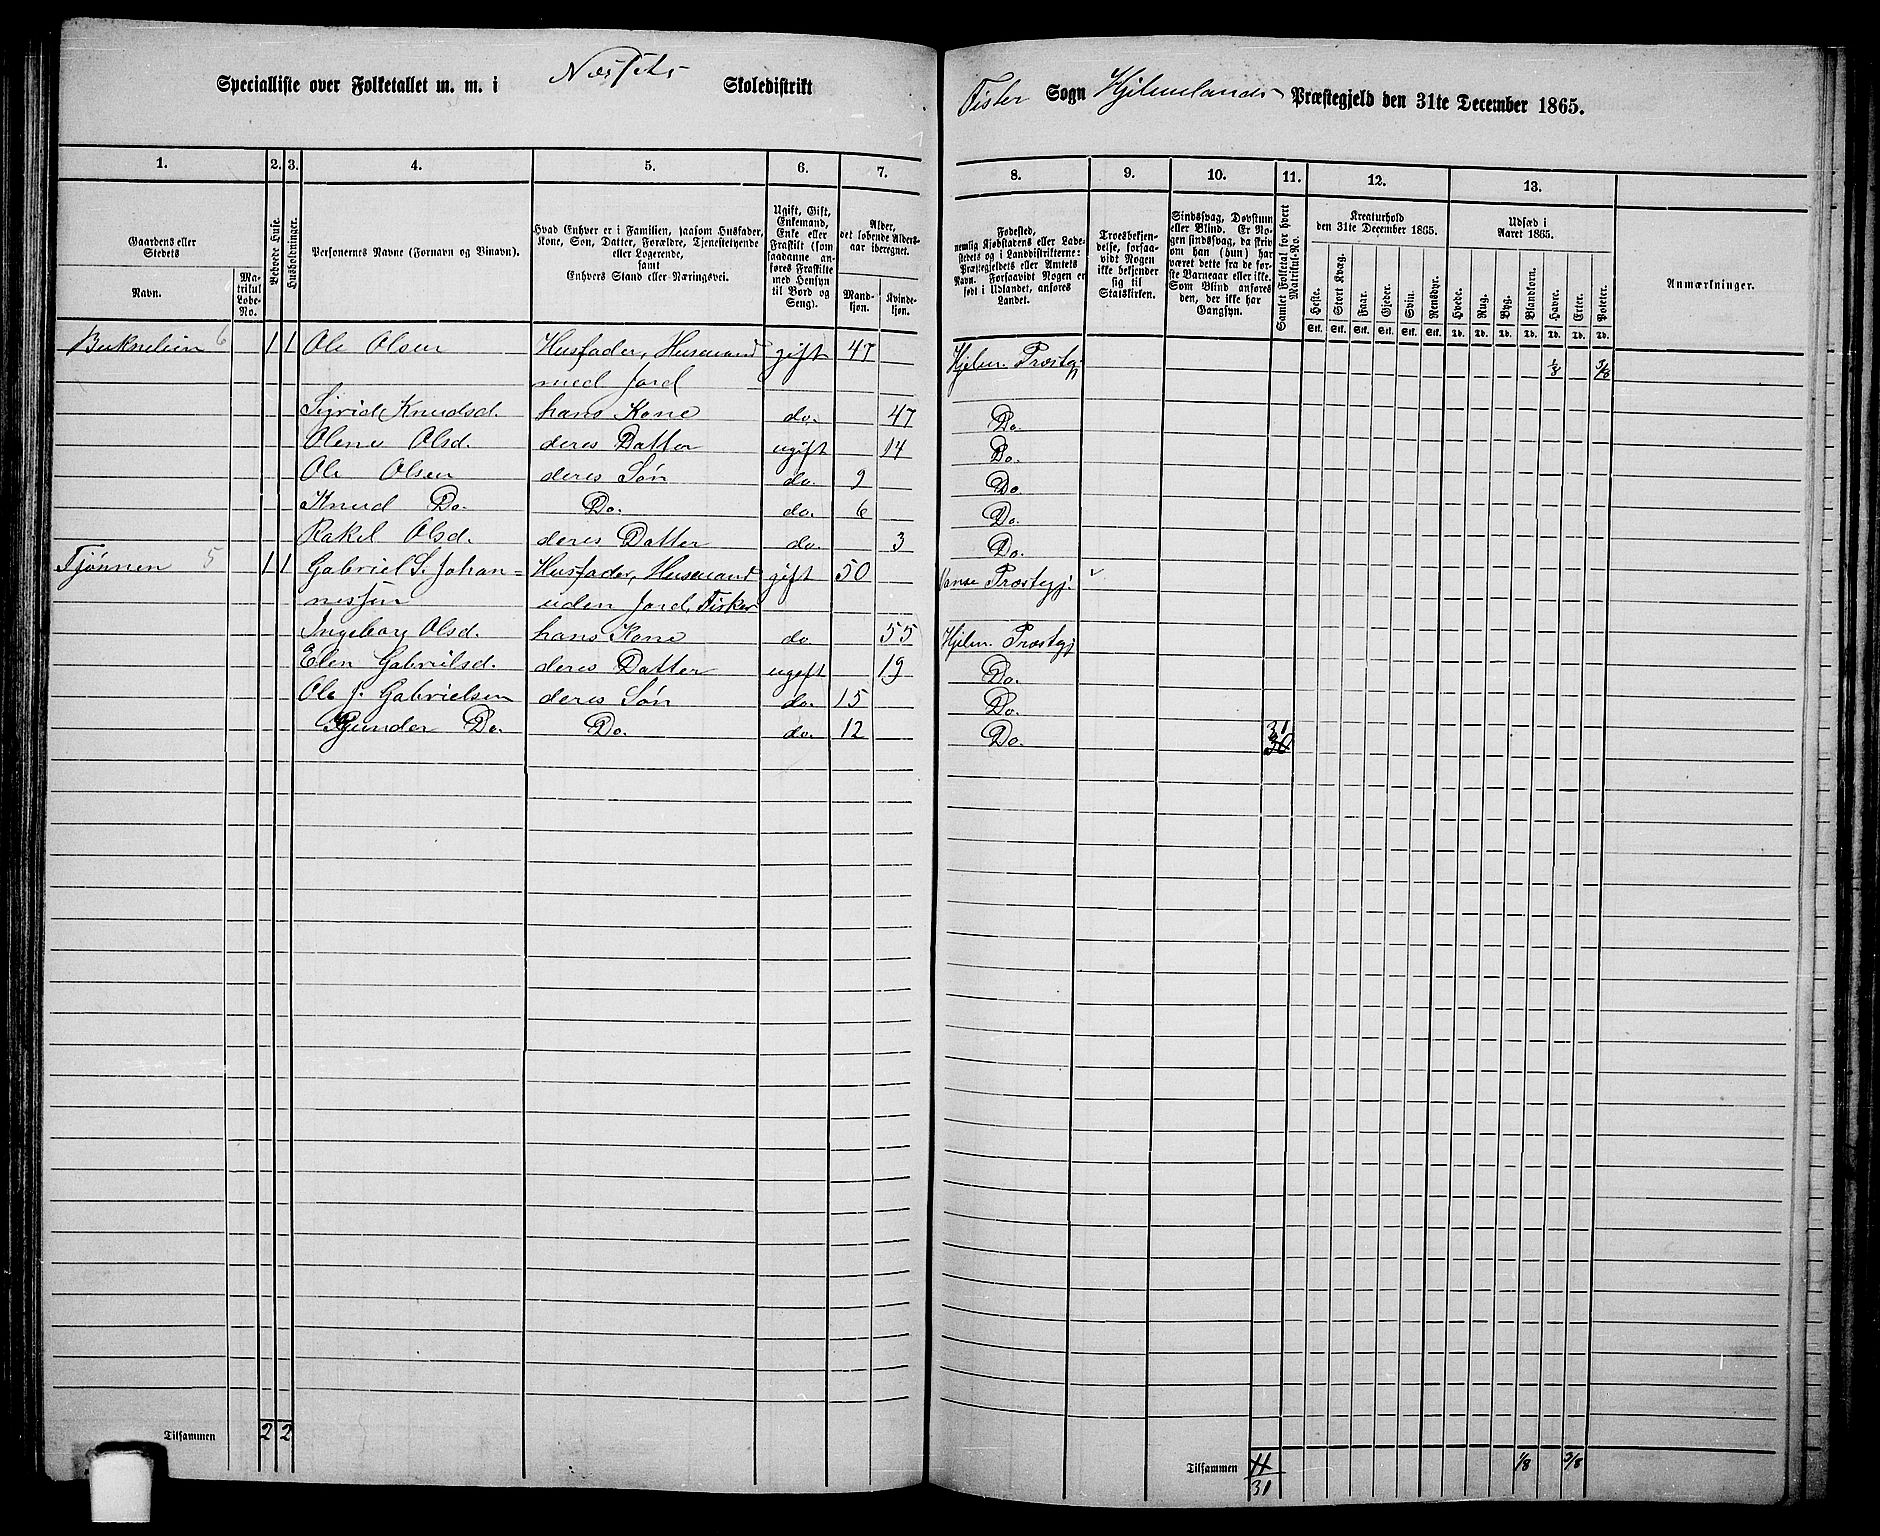 Specialliste over Folketallet m. m. i Nessets Skoledistrikt
Fister Sogn Hjelmelands Præstegjeld den 31te December 1865.
1. 2. 3. 4. 5. 6. 7. 8. 9. 10. 11. 12. 13.
Gaardens eller Stedets
Navn.
Matrikul Løbe-No.
Beboede Huse.
Husholdninger.
Personernes Navne (Fornavn og Binavn).
Hvad Enhver er i Familien, saasom Husfader,
Kone, Søn, Datter, Forældre, Tjenestetyende
eller Logerende,
samt
Enhvers Stand eller Næringsvei.
Ugift, Gift,
Enkemand,
Enke eller
Fraskilt (som
saadanne an-
føres Fraskilte
med Hensyn
til Bord og
Seng).
Alder,
det løbende Alders-
aar iberegnet.
Mand-
kjøn.
Kvinde-
kjøn.
Fødested,
nemlig Kjøbstadens eller Lade-
stedets og i Landdistrikterne:
Præstegjeldets eller Amtets
Navn. Forsaavidt Nogen er
født i Udlandet, anføres
Landet.
Troesbekjen-
delse, forsaa-
vidt Nogen
ikke bekjender
sig til
Statskirken.
Sindssvag, Døvstum
eller Blind. Er No-
gen sindssvag, da skriv
om han (hun) har
været dette fra de før-
ste Barneaar eller ikke.
Som Blind anføres
den, der ikke har
Gangsyn.
Samlet Folketal for hvert
Matrikul-No.
Kreaturhold
den 31te December 1865.
Heste. Stort Kvæg. Faar. Gjeder. Svin. Rensdyr.
Stk. Stk. Stk. Stk. Stk. Stk.
Udsæd i
Aaret 1865.
Hvede. Rug. Byg. Blandkorn. Havre. Erter. Poteter.
Td. Td. Td. Td. Td. Td. Td.
Anmærkninger.
6 1 1 Ole Olsen Husfader, Husmand gift 47 Hjelm. Præstegj 1/8 3/8
med Jord
Sigrid Knudsd. hans Kone do. 47 Do.
Olene Olsd. deres Datter ugift 14 Do.
Ole Olsen deres Søn do. 9 Do.
Knud Do. Do. do. 6 Do.
Rakel Olsd. deres Datter do. 3 Do.
Tjønnen 5 1 1 Gabriel S. Johan= Husfader, Husmand gift 50 Vanse Præstegj.
nessen uden Jord, Fisker
Ingeborg Olsd. hans Kone do 55 Hjelm. Præstegj
Elen Gabrielsd. deres Datter ugift 19 Do.
Ole J. Gabrielsen deres Søn do. 15 Do.
Do. Do. do. 12 Do. 31
30
Tilsammen 2 2
Tilsammen 11 1/8 3/8
31